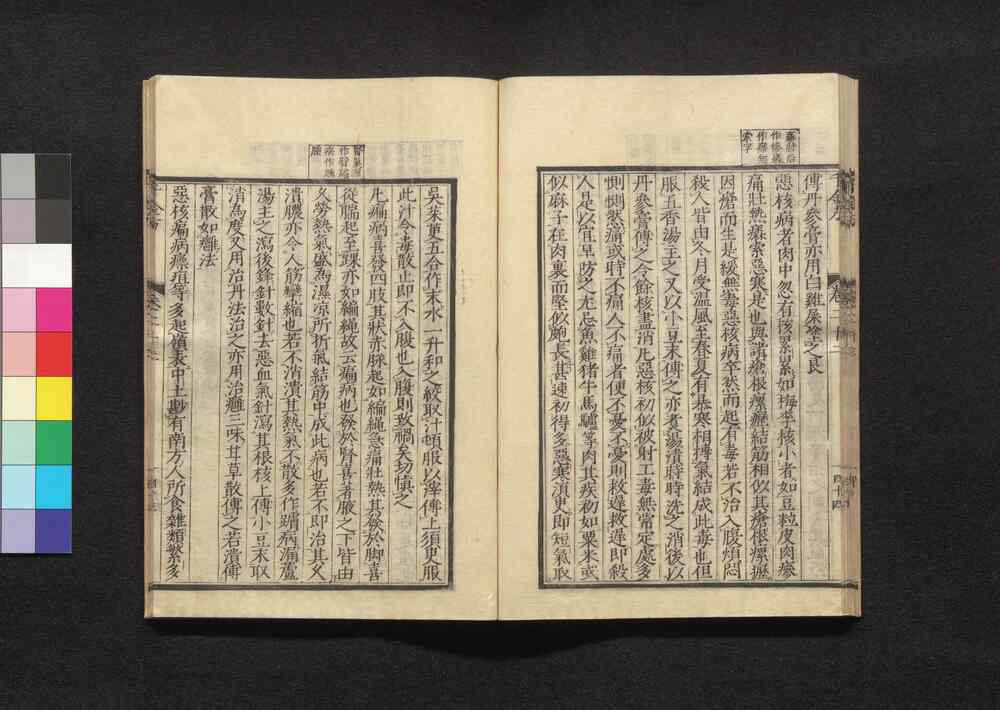 傅丹參膏亦用白雞屎塗之良
惡核病者肉中忽有核累累如梅李核小者如豆粒皮肉瘮
痛壯熱瘮索惡寒是也與諸瘡根瘰癧結筋相似其瘡根瘰癧
因瘡而生是緩無毒惡核病卒然而起有毒若不治入腹煩悶
殺人皆由冬月受溫風至春夏有暴寒相搏氣結成此毒也但
服五香湯主之又以小豆末傅之亦煮湯漬時時洗之消後以
丹參膏傅之令餘核盡消凡惡核初似被射工毒無常定處多
惻惻然痛或時不痛人不痛者便不憂不憂則救遲救遲即殺
人是以宜早防之尤忌魚雞猪牛馬驢等肉其疾初如粟米或
似麻子在肉裏而堅似皰長甚速初得多惡寒須臾即短氣取
吳茱萸五合作末水一升和之絞取汁頓服以滓傅上須臾服
此汁令毒散止即不入腹也入腹則致禍矣切慎之
凡㾫病喜發四肢其狀赤脉起如編繩急痛壯熱其發於脚喜
從腨起至踝亦如編繩故云㾫病也發於臂喜著腋之下皆由
久勞熱氣盛為濕凉所折氣結筋中成此病也若不即治其久
潰膿亦令人筋攣縮也若不消潰其熱氣不散多作䐃病漏蘆
湯主之瀉後鋒針數針去惡血氣針瀉其根核上傅小豆末取
消為度又用治丹法治之亦用治癰三味甘草散傅之若潰傅
膏散如癰法
惡核㾫病瘭疽等多起嶺表中土尠有南方人所食雜類繁多